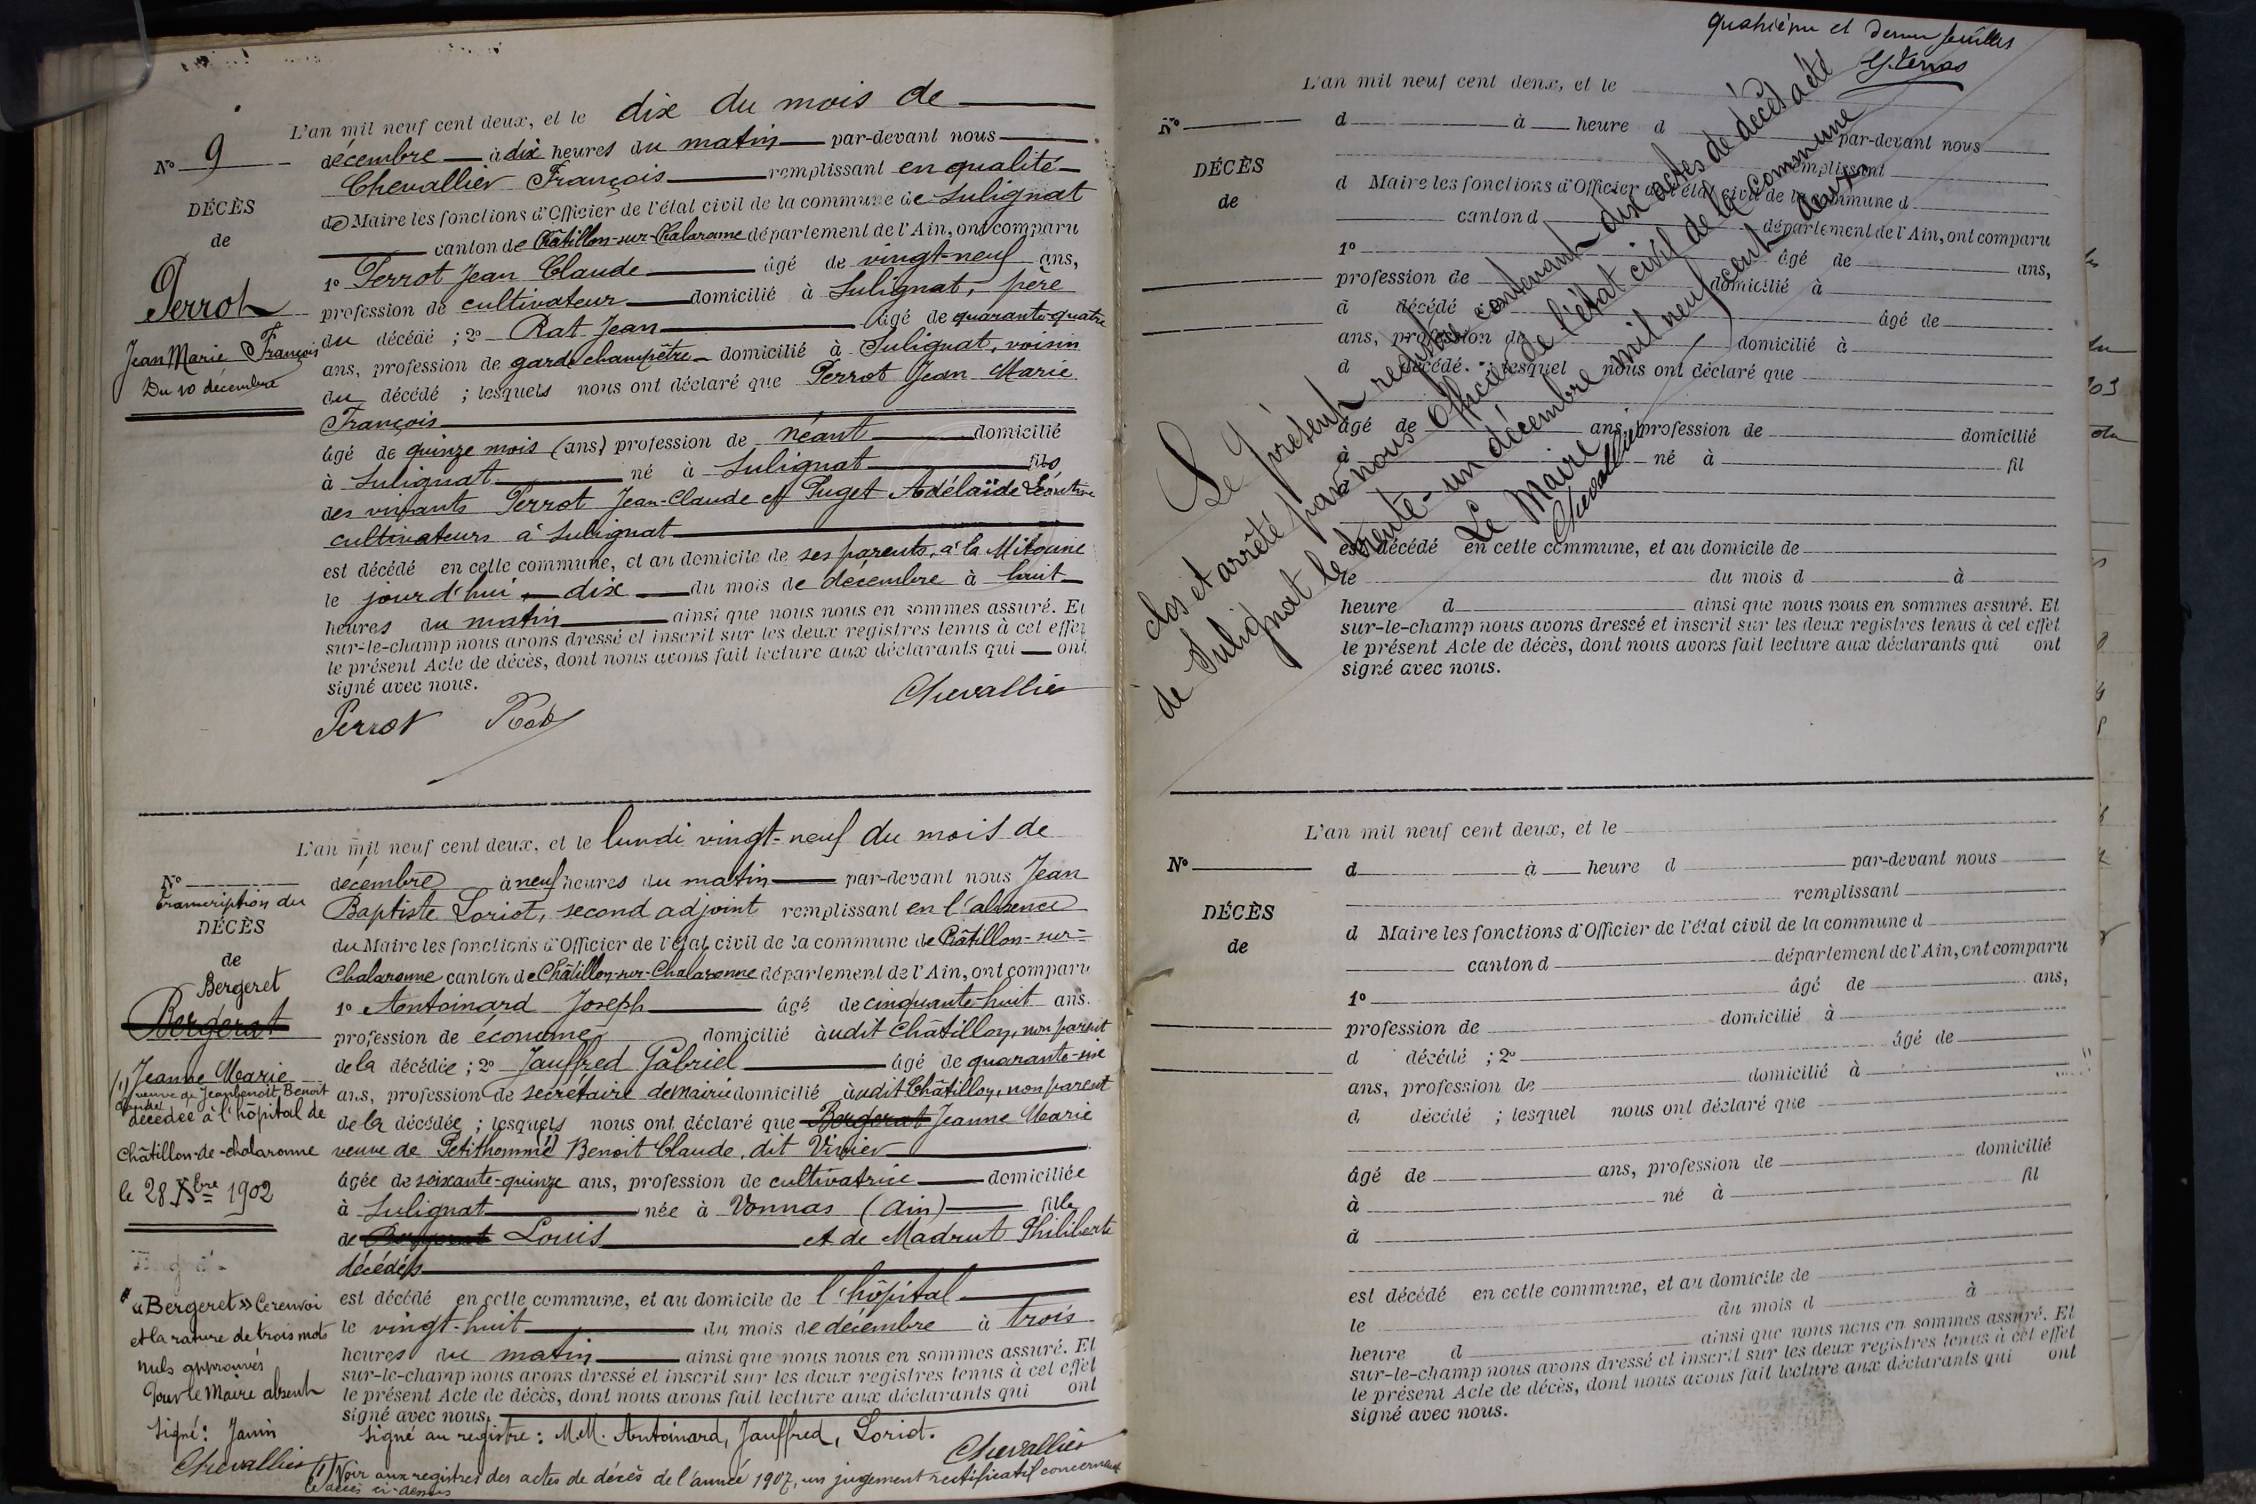 L'an mil neuf cent deux, et le dix du mois de
N° 9
décembre à dix heures du matin par-devant nous
Chevallier François remplissant en qualité
DÉCÈS
de Maire les fonctions d'Officier de l'état civil de la commune de Sulignat
de
canton de Châtillon-sur-Chalaronne département de l'Ain, ont comparu
Perrot
1° Perrot Jean Claude âgé de vingt-neuf ans,
profession de cultivateur domicilié à Sulignat, père
Jean Marie François
du décédé ; 2° Rat Jean âgé de quarante-quatre
Du 10 décembre
ans, profession de garde champêtre domicilié à Sulignat, voisin
du décédé ; lesquels nous ont déclaré que Perrot Jean Marie
François
âgé de quinze mois (ans) profession de néant domicilié
à Sulignat né à Sulignat fils
des vivants Perrot Jean-Claude et Puget Adélaïde
cultivateurs à Sulignat
est décédé en cette commune, et au domicile de ses parents, à la Mitaine
le jour d'hui dix du mois de décembre à huit
heures du matin ainsi que nous nous en sommes assuré. Et
sur-le-champ nous avons dressé et inscrit sur les deux registres tenus à cet effet
le présent Acte de décès, dont nous avons fait lecture aux déclarants qui ont
signé avec nous.
Perrot Rat Chevallier
L'an mil neuf cent deux, et le lundi vingt-neuf du mois de
N°
décembre à neuf heures du matin par-devant nous Jean
Transcription du
Baptiste Loriot, second adjoint remplissant en l'absence
DÉCÈS
du Maire les fonctions d'Officier de l'état civil de la commune de Châtillon-sur-
de
Chalaronne canton de Châtillon-sur-Chalaronne département de l'Ain, ont comparu
Bergeret
1° Antoinard Joseph âgé de cinquante-huit ans.
Bergerat
profession de économe domicilié à udit Châtillon, non parent
de la décédée ; 2° Jauffred Gabriel âgé de quarante-six
(1) Jeanne Marie
veuve de Jeanbenoît Benoit
Claude
ans, profession de secrétaire de Mairie domicilié à udit Châtillon, non parent
décédée à l'hôpital de
de la décédée ; lesquels nous ont déclaré que Bergerat Jeanne Marie
Châtillon-de-chalaronne
veuve de Petithomme (1) Benoit Claude, dit Vivier
le 28 Xbre 1902
âgée de soixante-quinze ans, profession de cultivatrice domiciliée
à Sulignat née à Vonnas (Ain) fille
de Bergerat Louis et de Madrut Philiberte
décédés
est décédé en cette commune, et au domicile de l'hôpital
le vingt-huit du mois de décembre à trois
heures du matin ainsi que nous nous en sommes assuré. Et
sur-le-champ nous avons dressé et inscrit sur les deux registres tenus à cet effet
le présent Acte de décès, dont nous avons fait lecture aux déclarants qui ont
signé avec nous.
"« Bergeret » Ce renvoi
et la rature de trois mots
nuls approuvés
Pour le Maire absent
Signé : Janin
Chevallier
Signé au registre : M.M. Antoinard, Jauffred, Loriot.
Chevallier
(1) Voir aux registres des actes de décès de l'année 1907, un jugement rectificatif concernant
le décès ci-dessus
quatrième et dernier feuillet
L'an mil neuf cent deux, et le
N°
d à heure d par-devant nous
remplissant
DÉCÈS
d Maire les fonctions d'Officier de l'état civil de la commune d
de
canton d département de l'Ain, ont comparu
1° âgé de ans,
profession de domicilié à
d décédé âgé de
ans, profession de domicilié à
d décédé. ; lesquel nous ont déclaré que
âgé de ans, profession de domicilié
à né à fil
est décédé en cette commune, et au domicile de
le du mois d à
heure d ainsi que nous nous en sommes assuré. Et
sur-le-champ nous avons dressé et inscrit sur les deux registres tenus à cet effet
le présent Acte de décès, dont nous avons fait lecture aux déclarants qui ont
signé avec nous.
Le présent registre contenant dix actes de décès a été
clos et arrêté par nous Officier de l'état civil de la commune
de Sulignat le trente-un décembre mil neuf cent deux
Le Maire
Chevallier
L'an mil neuf cent deux, et le
N°
d à heure d par-devant nous
remplissant
DÉCÈS
d Maire les fonctions d'Officier de l'état civil de la commune d
de
canton d département de l'Ain, ont comparu
1° âgé de ans,
profession de domicilié à
d décédé ; 2° âgé de
ans, profession de domicilié à
d décédé ; lesquel nous ont déclaré que
âgé de ans, profession de domicilié
à né à fil
à
est décédé en cette commune, et au domicile de
le du mois d à
heure d ainsi que nous nous en sommes assuré. Et
sur-le-champ nous avons dressé et inscrit sur les deux registres tenus à cet effet
le présent Acte de décès, dont nous avons fait lecture aux déclarants qui ont
signé avec nous.